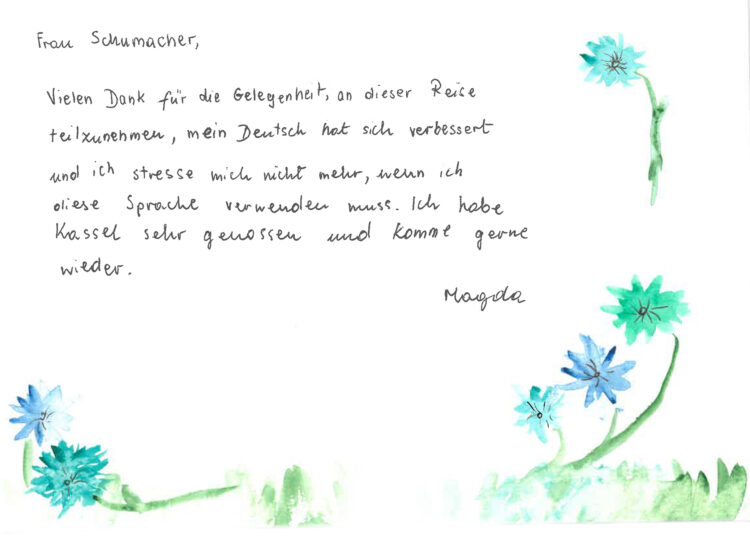 Frau Schumacher,
Vielen Dank für die Gelegenheit, an dieser Reise
teilzunehmen, mein Deutsch hat sich verbessert
und ich stresse mich nicht mehr, wenn ich
diese Sprache verwenden muss. Ich habe
Kassel sehr genossen und komme gerne
wieder.
Magda